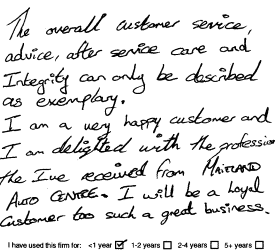 The overall customer service,
advice, after service care and
Integrity can only be described
as exemplary.
I am a very happy customer and
I am delighted with the profession
the I've received from MAITLAND
AUTO CENTRE. I will be a loyal
Customer too such a great business.
I have used this firm for: <1 year ☑ 1-2 years ☐ 2-4 years ☐ 5+ years ☐